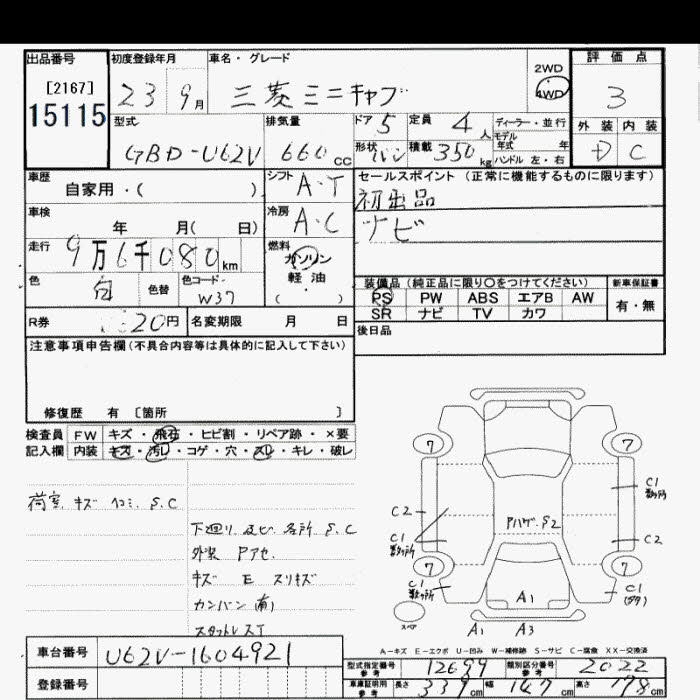 出品番号 初度登録年月 車名・グレード 2WD 評価点
[2167] 23 9月 三菱ミニキャブ 4WD 3
15115
型式 排気量 ドア 5 定員 4人 ディーラー・並行 外装 内装
GBD-U62V 660cc 形状 バン 積載 350kg モデル年式 年 D C
ハンドル 左・右
車歴 自家用・( ) シフト A・T セールスポイント (正常に機能するものに限ります)
初出品
車検 年 月( 日) 冷房 A・C ナビ
走行 9万6千080km 燃料 ガソリン
軽油
( )
色 白 色替 色コード W37
装備品 (純正品に限り○をつけてください) 新車保証書
PS PW ABS エアB AW 有・無
SR ナビ TV カワ
R券 20円 名変期限 月 日 後日品
注意事項申告欄(不具合内容等は具体的に記入して下さい)
修復歴 有 [箇所 ]
検査員 FW キズ・飛石・ヒビ割・リペア跡・×要
記入欄 内装 キズ・汚レ・コゲ・穴・スレ・キレ・破レ
荷室 キズ ヘコミ S.C
下廻り及ビ各所 S.C
外装 Pアセ
キズ E スリキズ
カンバン有
スタットレスT
7 7
C1 数ヶ所
C2 Pハゲ.S2 C2
C1 数ヶ所
7 7
C1 数ヶ所 A1 C1
スペア A1 A3
A-キズ E-エクボ U-凹み W-補修跡 S-サビ C-腐食 XX-交換済
車台番号 U62V-1604921
型式指定番号 参考 12699 類別区分番号 参考 2022
登録番号 車庫証明用 参考 長さ 339cm 幅 147cm 高さ 178cm